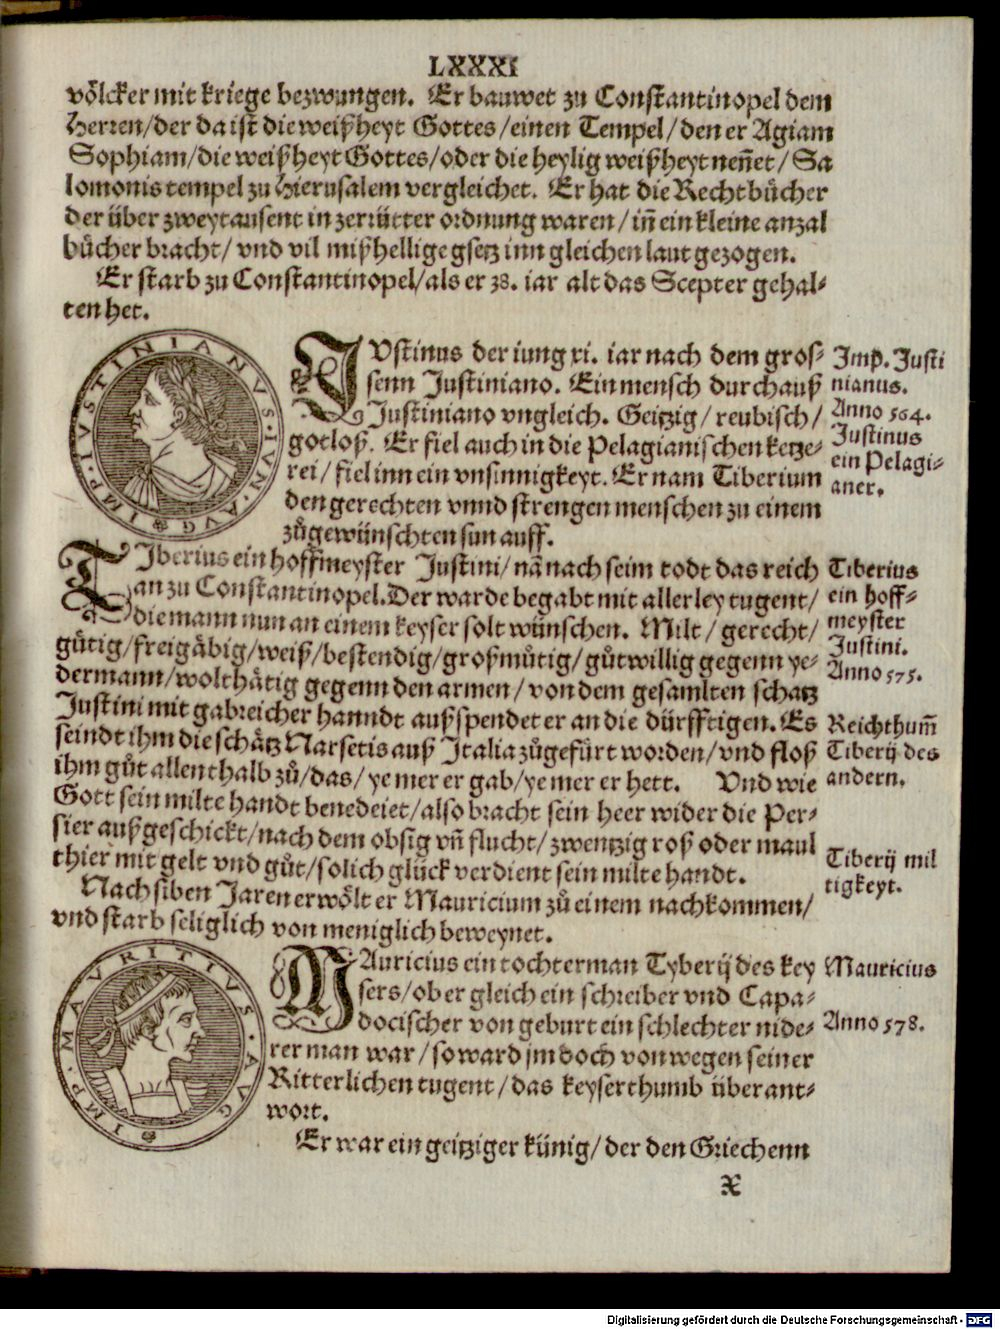 LXXXI
võlcker mit kriege bezwungen. Er bauwet zu Constantinopel dem
Herren/der da ist die weißheyt Gottes/einen Tempel/den er Agiam
Sophiam/die weißheyt Gottes/oder die heylig weißheyt neñet/Sa
lomonis tempel zu Hierusalem vergleichet. Er hat die Rechtbůcher
der über zweytausent in zerrütter ordnung waren/iñ ein kleine anzal
bůcher bracht/vnd vil mißhellige gsetz inn gleichen laut gezogen.
Er starb zu Constantinopel/als er 38. iar alt das Scepter gehal-
ten het.
IMP·IVSTINIANVS·IVN·AVG
IVstinus der iung xi. iar nach dem gros-
senn Justiniano. Ein mensch durchauß
Justiniano vngleich. Geitzig/reubisch/
gotloß. Er fiel auch in die Pelagianischen ketze-
rei/fiel inn ein vnsinnigkeyt. Er nam Tiberium
den gerechten vnnd strengen menschen zu einem
zůgewünschten sun auff.
Imp. Justi
nianus.
Anno 564.
Justinus
ein Pelagi-
aner.
TIberius ein hoffmeyster Justini/nã nach seim todt das reich
an zu Constantinopel. Der warde begabt mit allerley tugent/
die mann nun an einem keyser solt wünschen. Milt/gerecht/
gůtig/freigäbig/weiß/bestendig/großmůtig/gůtwillig gegenn ye-
dermann/wolthätig gegenn den armen/von dem gesamlten schatz
Justini mit gabreicher hanndt außspendet er an die dürfftigen. Es
seindt ihm die schätz Narsetis auß Italia zůgefürt worden/vnd floß
ihm gůt allenthalb zů/das/ye mer er gab/ye mer er hett. Vnd wie
Gott sein milte handt benedeiet/also bracht sein heer wider die Per-
sier außgeschickt/nach dem obsig vñ flucht/zwentzig roß oder maul
thier mit gelt vnd gůt/solich glück verdient sein milte handt.
Nach siben Jaren erwõlt er Mauricium zů einem nachkommen/
vnd starb seliglich von meniglich beweynet.
Tiberius
ein hoff-
meyster
Justini.
Anno 575.
Reichthum̃
Tiberij des
andern.
Tiberij mil
tigkeyt.
IMP·MAVRITIVS·AVG
MAuricius ein tochterman Tyberij des key
sers/ob er gleich ein schreiber vnd Capa-
docischer von geburt ein schlechter nide-
rer man war/so ward jm doch von wegen seiner
Ritterlichen tugent/das keyserthumb überant-
wort.
Er war ein geitziger künig/der den Griechenn
Mauricius
Anno 578.
X
Digitalisierung gefördert durch die Deutsche Forschungsgemeinschaft - DFG